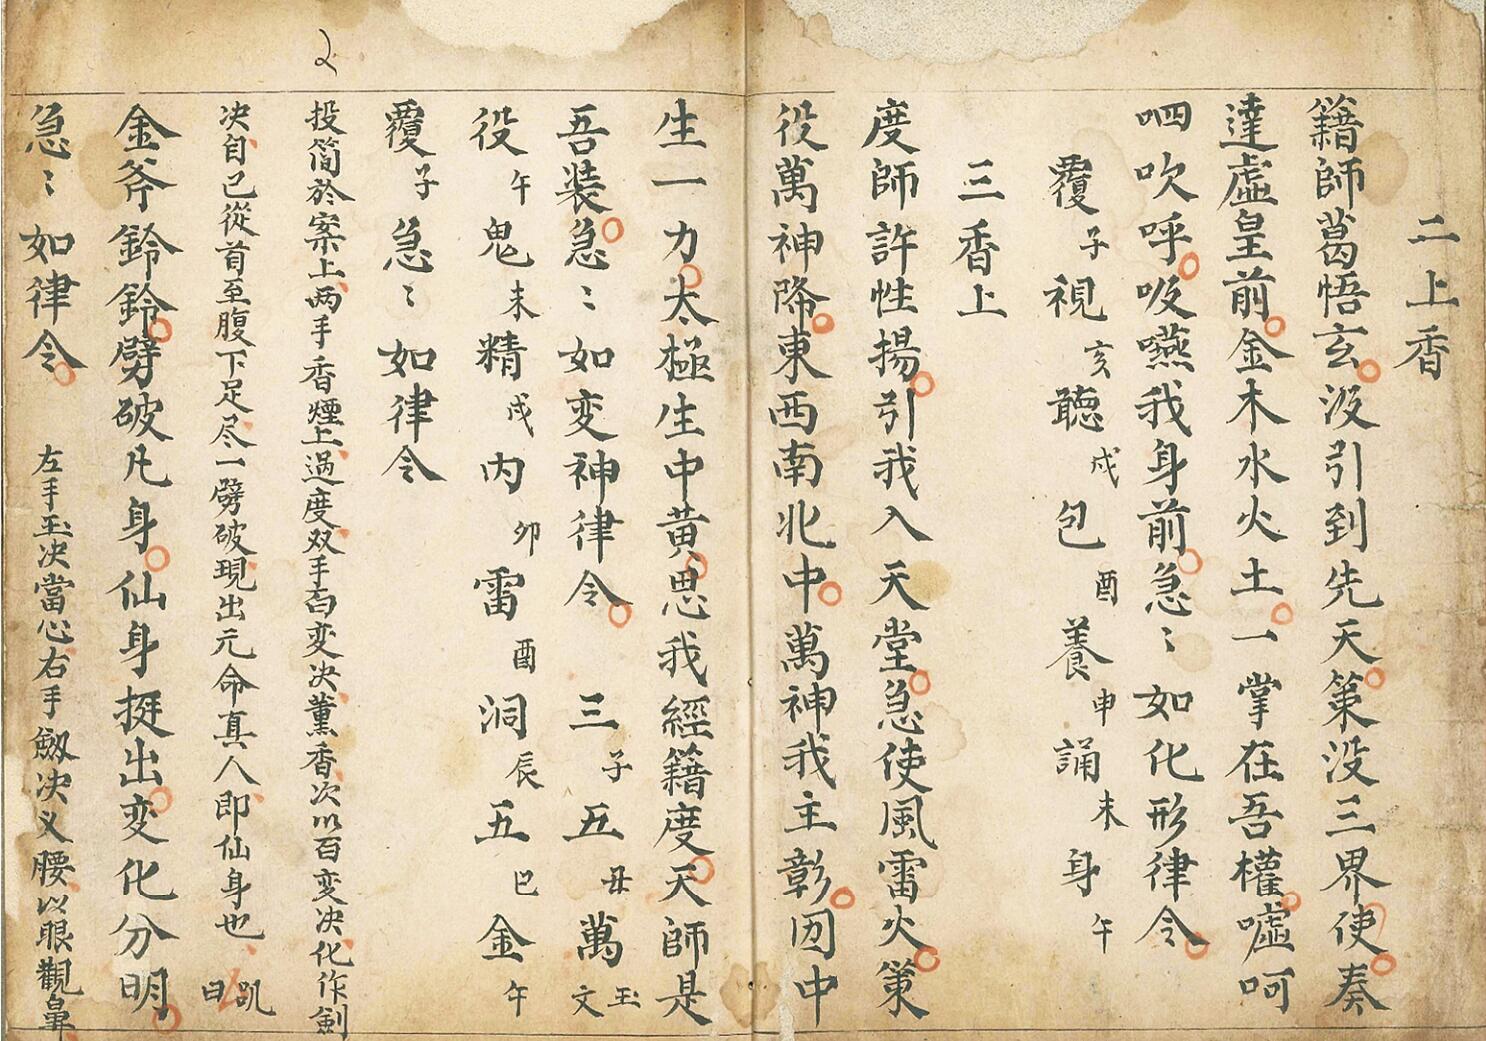 二上香
籍師葛悟玄没引到先天策没三界使奏
達虛皇前金木水火土一掌在吾權噓呵
呬吹呼吸嚥我身前急〻如化形律令
覆子視亥聽戌包酉養申誦未身午
三香上
度師許性揚引我入天堂急使風雷火策
役萬神降東西南北中萬神我主彰因中
生一力太極生中黃思我經籍度天師是
吾装急〻如变神律令 三子五丑萬玉文
役午鬼未精戌内卯雷酉洞辰五巳金午
覆子急〻如律令
投简於案上两手香煙上過度双手百变决薰香次以百变决化作劍
决自己從首至腹下足尽一劈破現出元命真人即仙身也 叽曰
金斧鈴鈴劈破凡身仙身挺出变化分明
急〻如律令 左手玉决當心右手劔决义腰以眼觀鼻
2